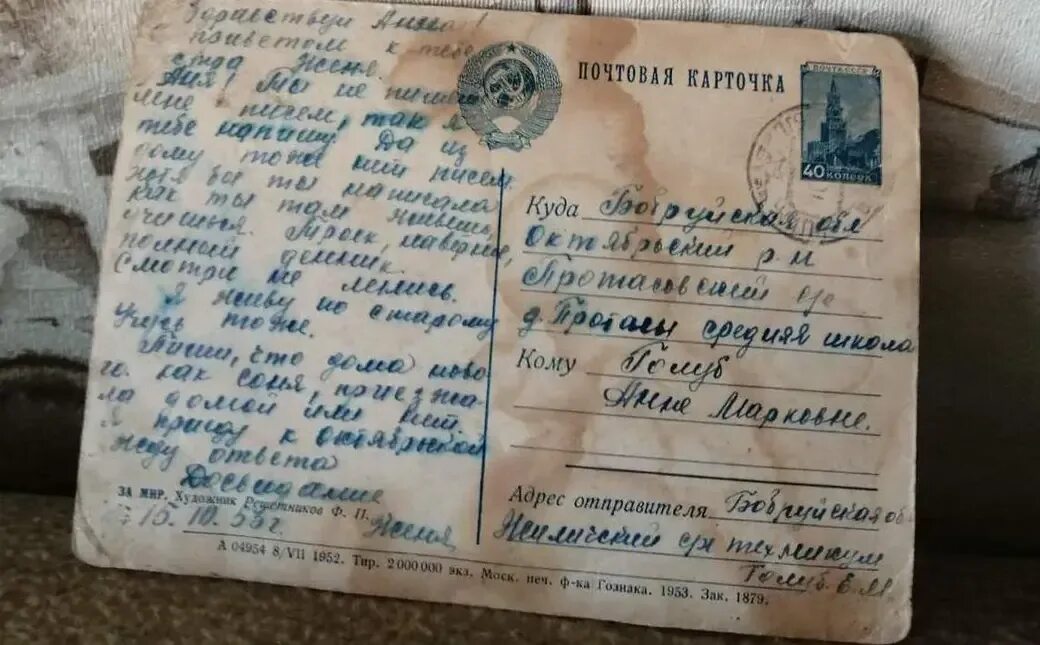 Здравствуй Анна!
С приветом к тебе
сестра Женя.
Аня! Ты не пишешь
мне писем, так я
тебе напишу. Да из
дому тоже нит писем.
Хотя бы ты написала
как ты там живешь,
учишься. Троек, наверно,
полный денник.
Смотри не ленись.
Я живу по старому
Учусь тоже.
Пиши, что дома ново-
го. Как Соня, приезжа-
ла домой или нит.
Я приеду к октябрьской
Жду ответа
Досьвидание
15.10.55 г. Женя
ЗА МИР. Художник Решетников Ф. П.
ПОЧТОВАЯ КАРТОЧКА
ПОЧТА СССР
40 КОПЕЕК
Куда Бобруйская обл
Октябрьский р-н
Протасовский
д. Протасы средняя школа
Кому Голуб
Анне Марковне.
Адрес отправителя Бобруйская об
Жиличский с/х техникум
Голуб Е. М.
А 04954 8/VII 1952. Тир. 2 000 000 экз. Моск. печ. ф-ка Гознака. 1953. Зак. 1879.